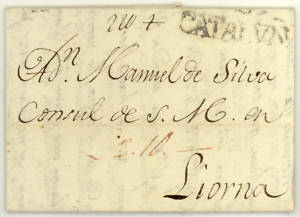 CATALUÑA
A Dn. Manuel de Silva
Consul de S. M. en
Liorna